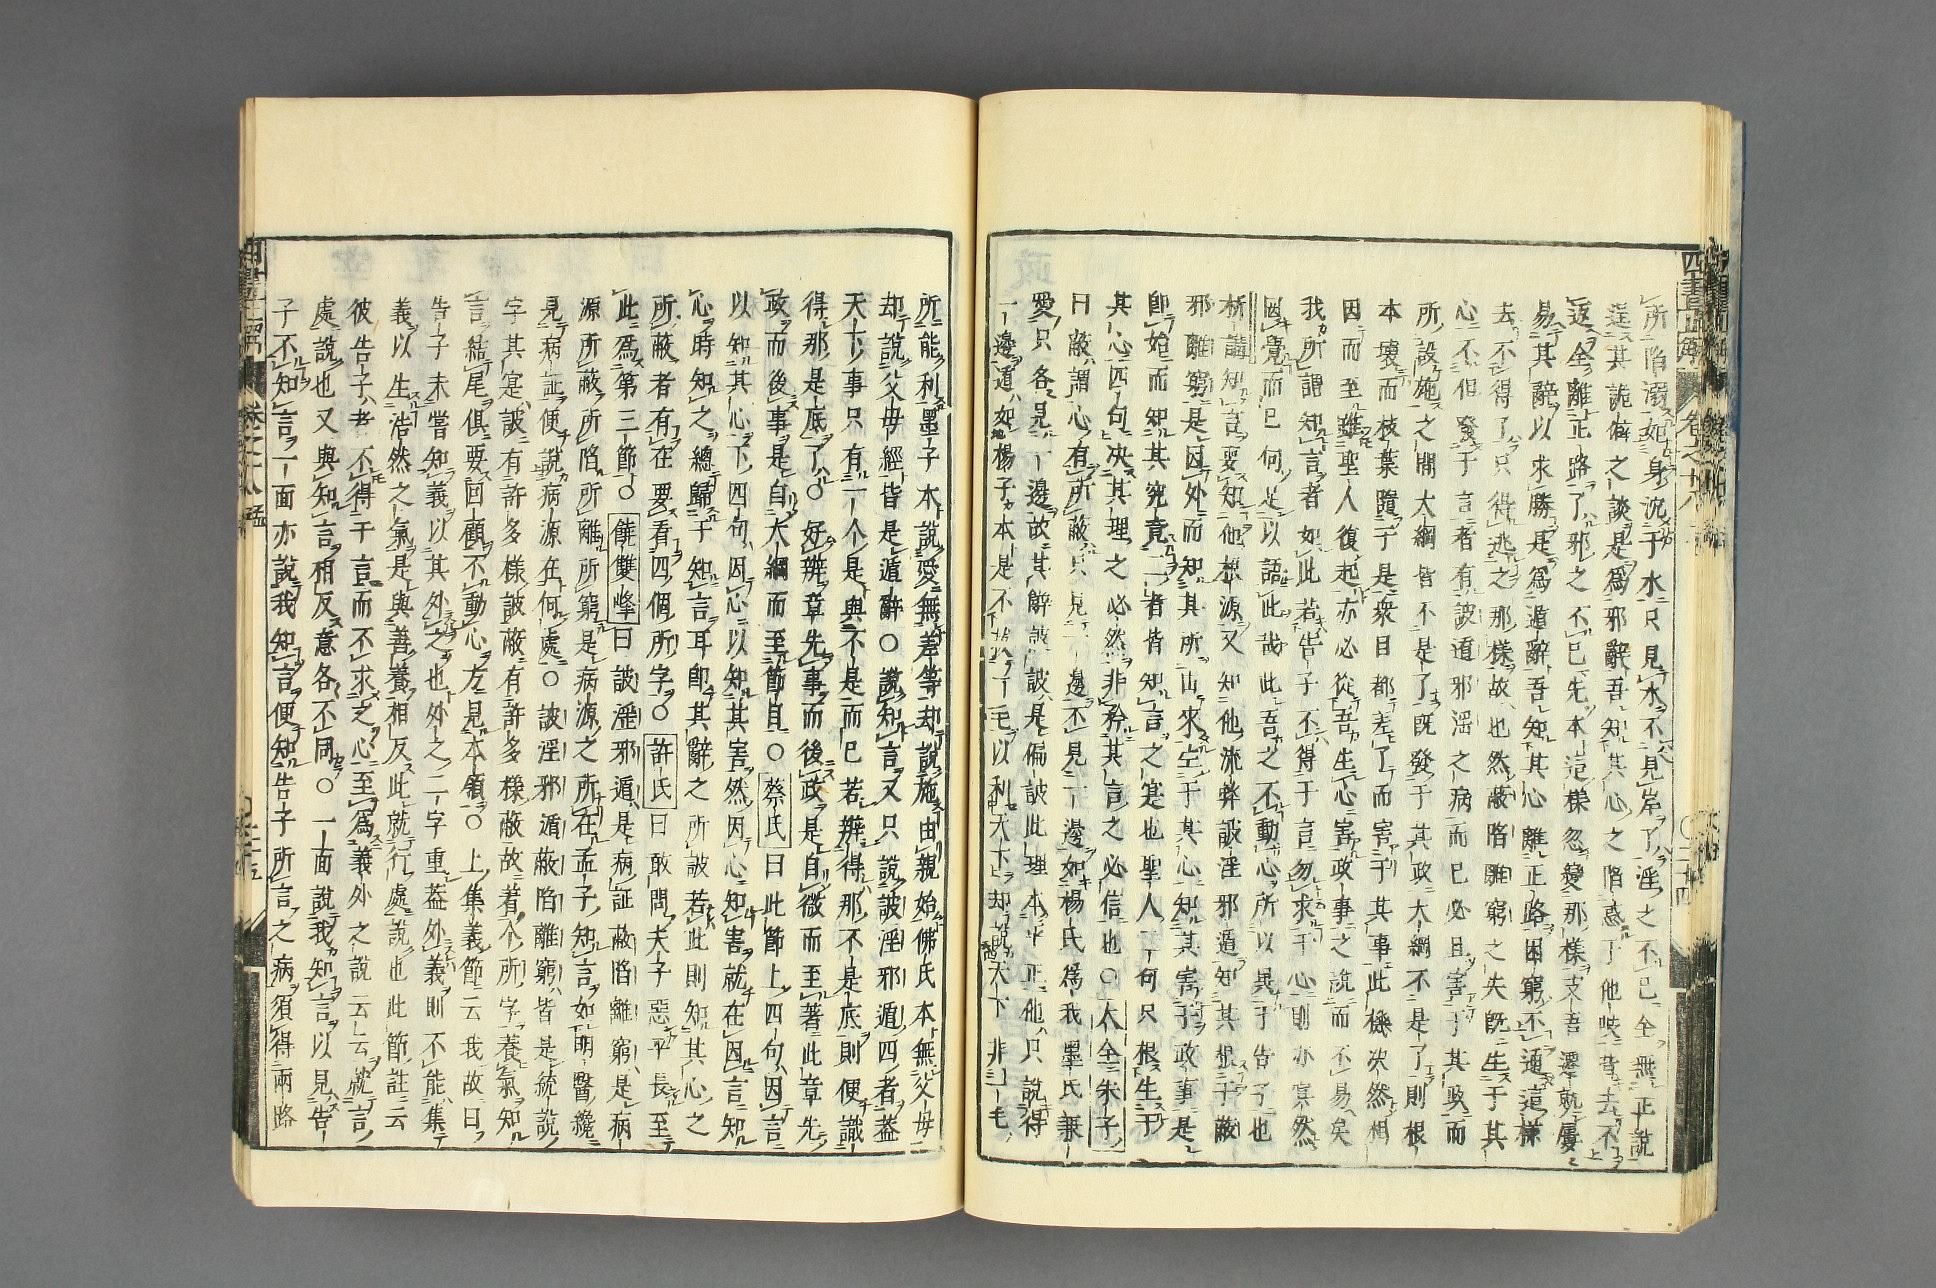 所陷溺如身沈于水只見水不見岸了淫之不已全無正說
逞其詭僻之談是爲邪辭吾知其心之陷惑了他岐昔去不
返全離正路了邪之不已先本這樣忽變那樣支吾遷就屢
易其辭以求勝是爲遁辭吾知其心離正路因窮不通這樣
去不得了只得逃之那樣故也然蔽陷離窮之失既生于其
心不但發于言者有詖遁邪淫之病而已必且害于其政而
所設施之間大綱皆不是了既發于其政大綱不是了則根
本壞而枝葉隨于是衆目都差了而害于其事此機决然相
因而至雖聖人復起亦必從吾生心害政事之說而不易矣
我所謂知言者如此若告子不得于言勿求于心則亦冥然
罔覺而已何足以語此哉此吾之不動心所以異于告子也
析講知言要知他根源又知他流弊詖淫邪遁知其根于蔽
邪離窮是因外而知其所由求生于其心知其害于政事是
卽始而知其究竟二者皆知言之寔也聖人一何只根生于
其心四句决其理之必然非矜其言之必信也〇大全朱子
曰蔽謂心有所蔽只見一邊不見一邊如楊氏爲我墨氏兼
愛只各見一邊故其辭詖詖是偏詖此理本平正他只說得
一邊道如楊子本是不拔一毛以利天下却說天下非一毛
所能利墨子本說愛無差等却說施由親始佛氏本無父母
却說父母經皆是遁辭〇說知言又只說詖淫邪遁四者蓋
天下事只有一个是與不是而已若辨得那不是底則便識
得那是底了〇好辨章先事而後政是自微而至著此章先
政而後事是自大綱而至節目〇蔡氏曰此節上四句因言
以知其心下四句因心以知其害然因心知害就在因言知
心時知之總歸于知言耳卽其辭之所詖若此則知其心之
所蔽者有在要看四個所字〇許氏曰敢問夫子惡乎長至
此爲第三節〇饒雙峰曰詖淫邪遁是病証蔽陷離窮是病
源所蔽所陷所離所窮是病源之所在孟子知言如明醫纔
見病証便說病源在何處〇詖淫邪遁蔽陷離窮皆是統說
字其寔詖有許多樣詖蔽有許多樣蔽故着个所字養氣知
言結尾俱要回顧不動心方見本領〇上集義節云我故曰
告子未嘗知義以其外之也外之二字重蓋外義則不能集
義以生浩然之氣是與善養相反此就行處說也此節註云
彼告子者不得于言而不求之心至爲義外之說云云就言
處說也又與知言相反意各不同〇一面說我知言以見告
子不知言一面亦說我知言便知告子所言之病須得兩路